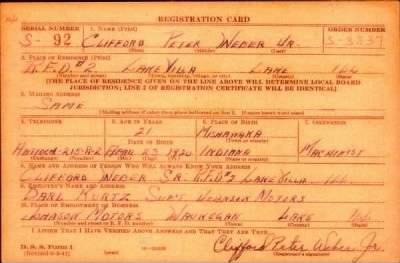 REGISTRATION CARD
SERIAL NUMBER 1. Name (Print) ORDER NUMBER
S- 92 CLIFFORD PETER WEBER JR.
(First) (Middle) (Last)
2. Place of Residence (Print)
R.F.D.#2 LAKE VILLA LAKE ILL
[THE PLACE OF RESIDENCE GIVEN ON THE LINE ABOVE WILL DETERMINE LOCAL BOARD
JURISDICTION; LINE 2 OF REGISTRATION CERTIFICATE WILL BE IDENTICAL]
3. Mailing Address
SAME
[Mailing address if other than place indicated on line 2. If same, insert word same]
4. Telephone 5. Age in Years 6. Place of Birth 7. Occupation
21 MISHAWAKA
Date of Birth
ANTIOCH-215-R-2 APRIL 23 1920 INDIANA MACHINIST
(Exchange) (Number) (Mo.) (Day) (Yr.)
8. Name and Address of Person Who Will Always Know Your Address
CLIFFORD WEBER SR. R.F.D#2 LAKE VILLA ILL
9. Employer's Name and Address
KURTZ SUPT JOHNSON MOTORS
10. Place of Employment or Business
JOHNSON MOTORS WAUKEGAN LAKE ILL
I Affirm That I Have Verified Above Answers and That They Are True.
D. S. S. Form 1
Clifford Peter Weber Jr.
(Registrant's signature)